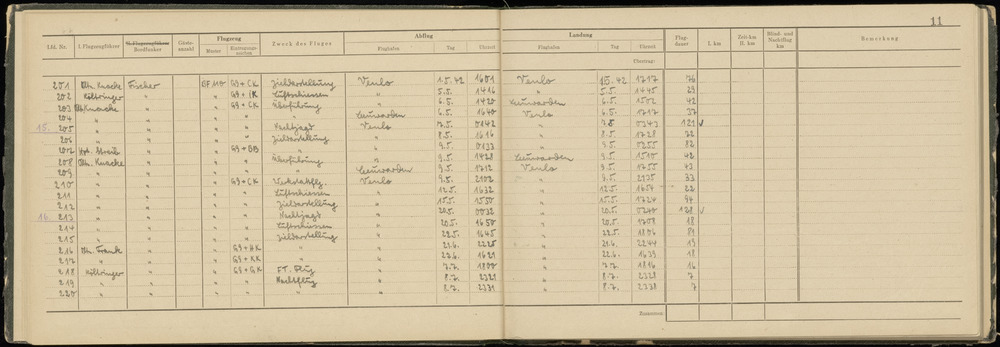 11
Lfd. Nr. I. Flugzeugführer II. Flugzeugführer Bordfunker Gästeanzahl Flugzeug Muster Eintragungszeichen Zweck des Fluges Abflug Flughafen Tag Uhrzeit Landung Flughafen Tag Uhrzeit Flugdauer I. km Zeit km II. km Blind- und Nachtflug km Bemerkung
Übertrag:
201 Oltn. Knacke Fischer BF 110 G9 + CK Zieldarstellung Venlo 1.5. 42 1601 Venlo 1.5. 42 1717 76
202 Költringer " " G9 + IK Luftschiessen " 5.5. 1416 " 5.5. 1445 29
203 Oltn. Knacke " " G9 + CK Überführung " 6.5. 1420 Leeuwarden 6.5. 1502 42
204 " " " " " Leeuwarden 6.5. 1640 Venlo 6.5. 1717 37
15. 205 " " " " Nachtjagd Venlo 7.5. 0142 " 7.5. 0343 121 ✓
206 " " " " Zieldarstellung " 8.5. 1616 " 8.5. 1728 72
207 Hptm. Streib " " G9 + BB " " 9.5. 0133 " 9.5. 0255 82
208 Oltn. Knacke " " " Überführung " 9.5. 1428 Leeuwarden 9.5. 1510 42
209 " " " " " Leeuwarden 9.5. 1712 Venlo 9.5. 1755 43
210 " " " G9 + CK Werkstattflg. Venlo 9.5. 2102 " 9.5. 2135 33
211 " " " " Luftschiessen " 12.5. 1632 " 12.5. 1654 22
212 " " " " Zieldarstellung " 15.5. 1550 " 15.5. 1724 94
16. 213 " " " " Nachtjagd " 20.5. 0032 " 20.5. 0240 128 ✓
214 " " " " Luftschiessen " 20.5. 1650 " 20.5. 1708 18
215 " " " " Zieldarstellung " 22.5. 1645 " 22.5. 1806 81
216 Oltn. Frank " " G9 + HK " " 21.6. 2225 " 21.6. 2244 19
217 " " " G9 + KK " " 22.6. 1621 " 22.6. 1639 18
218 Költringer " " G9 + GK F.T. Flug " 7.7. 1800 " 7.7. 1816 16
219 " " " " Nachtflug " 8.7. 2321 " 8.7. 2328 7
220 " " " " " " 8.7. 2331 " 8.7. 2338 7
Summen: